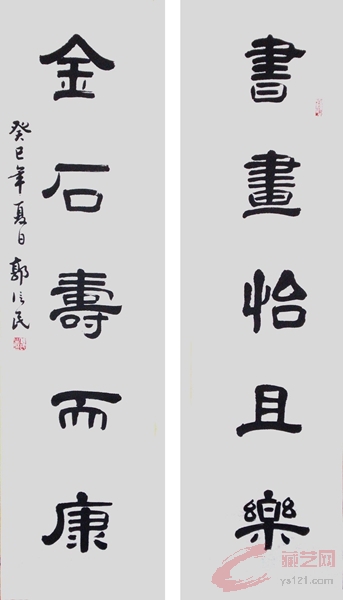 書畫怡且樂
金石壽而康
癸巳年夏日 郭信民
藏艺网
ys121.com